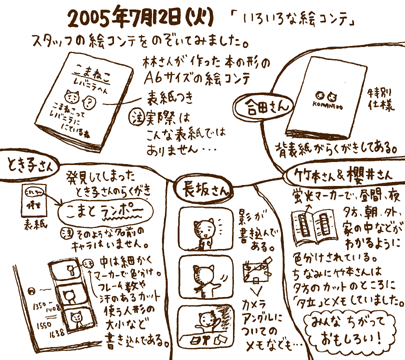 2005年7月12日(火) 「いろいろな絵コンテ」
スタッフの絵コンテをのぞいてみました。
こまねこ
こまねこって
にているね
林さんが作った本の形の
A6サイズの絵コンテ
表紙つき
注 実際は
こんな表紙では
ありません…
合田さん
KOMANEKO
特別
仕様
背表紙がらくがきしてある。
とき子さん
発見してしまった
とき子さんのらくがき
こまとランポー
表紙
注 そのような名前の
キャラはいません。
中は細かく
マーカーで色分け。
フレーム数や
汗のあるカット
使う人形の
大小など
書き込んである。
1350
1550
1638
長坂さん
影が
書き込んで
ある。
カメラ
アングルに
ついての
メモなども…
竹本さん&櫻井さん
蛍光マーカーで、昼間、夜
夕方、朝、外、
家の中などが
わかるように
色分けされている。
ちなみに竹本さんは
夕方のカットのところに
「夕立」とメモしていました。
みんなちがって
おもしろい!